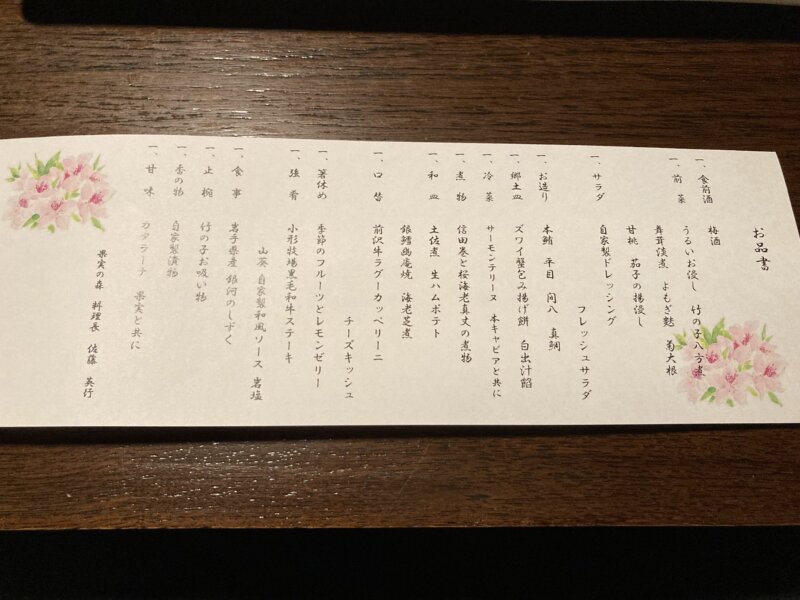 お品書
一、食前酒 梅酒
一、前菜 うるいお浸し 竹の子八方煮
舞茸淡煮 よもぎ麩 菊大根
甘桃 茄子の揚浸し
一、サラダ フレッシュサラダ
自家製ドレッシング
一、お造り 本鮪 平目 間八 真鯛
一、郷土皿 ズワイ蟹包み揚げ餅 白出汁餡
一、冷菜 サーモンテリーヌ 本キャビアと共に
一、煮物 信田巻と桜海老真丈の煮物
一、和皿 土佐煮 生ハムポテト
銀鱈幽庵焼 海老芝煮
一、口替 前沢牛ラグーカッペリーニ
チーズキッシュ
一、箸休め 季節のフルーツとレモンゼリー
一、強肴 小形牧場黒毛和牛ステーキ
山葵 自家製和風ソース 岩塩
一、食事 岩手県産 銀河のしずく
一、止椀 竹の子お吸い物
一、香の物 自家製漬物
一、甘味 カタラーナ 果実と共に
果実の森 料理長 佐藤 英行